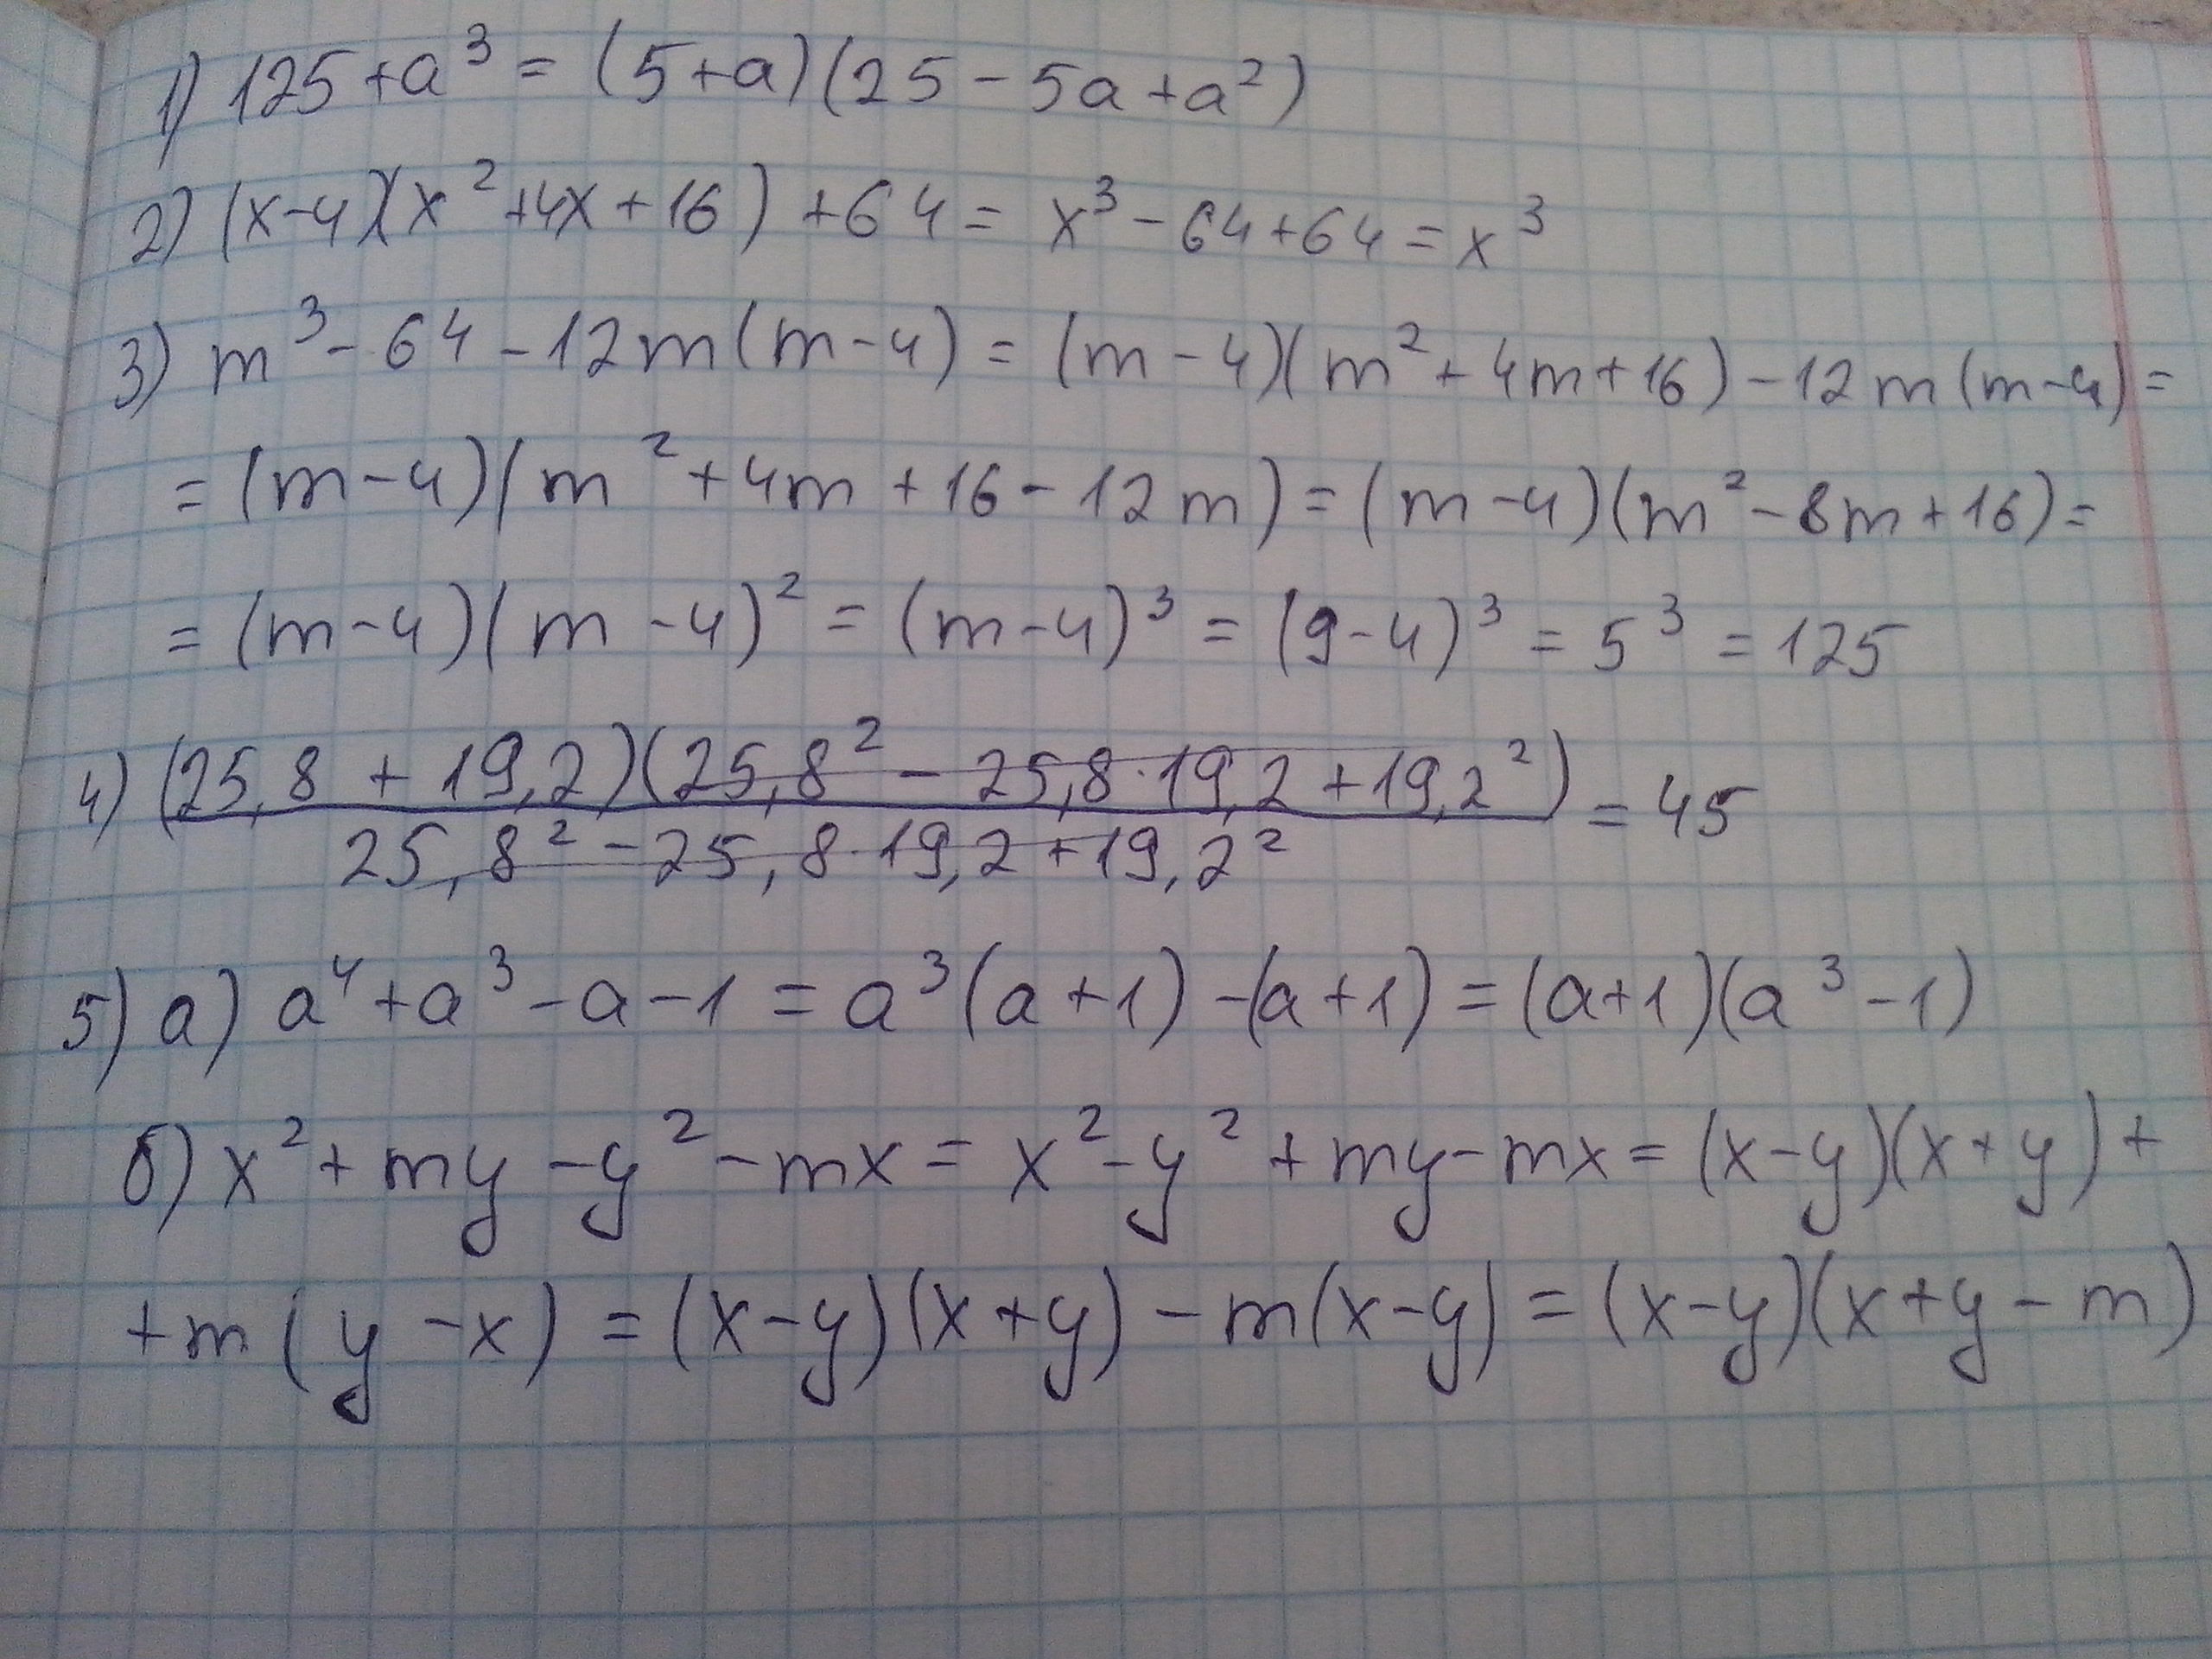 1) 125 + a³ = (5+a)(25 - 5a + a²)
2) (x-4)(x² + 4x + 16) + 64 = x³ - 64 + 64 = x³
3) m³ - 64 - 12m(m-4) = (m-4)(m² + 4m + 16) - 12m(m-4) =
= (m-4)(m² + 4m + 16 - 12m) = (m-4)(m² - 8m + 16) =
= (m-4)(m-4)² = (m-4)³ = (9-4)³ = 5³ = 125
4) (25,8 + 19,2)(25,8² - 25,8·19,2 + 19,2²) = 45
25,8² - 25,8·19,2 + 19,2²
5) а) a⁴ + a³ - a - 1 = a³(a+1) - (a+1) = (a+1)(a³ - 1)
б) x² + my - y² - mx = x² - y² + my - mx = (x-y)(x+y) +
+ m(y-x) = (x-y)(x+y) - m(x-y) = (x-y)(x+y-m)